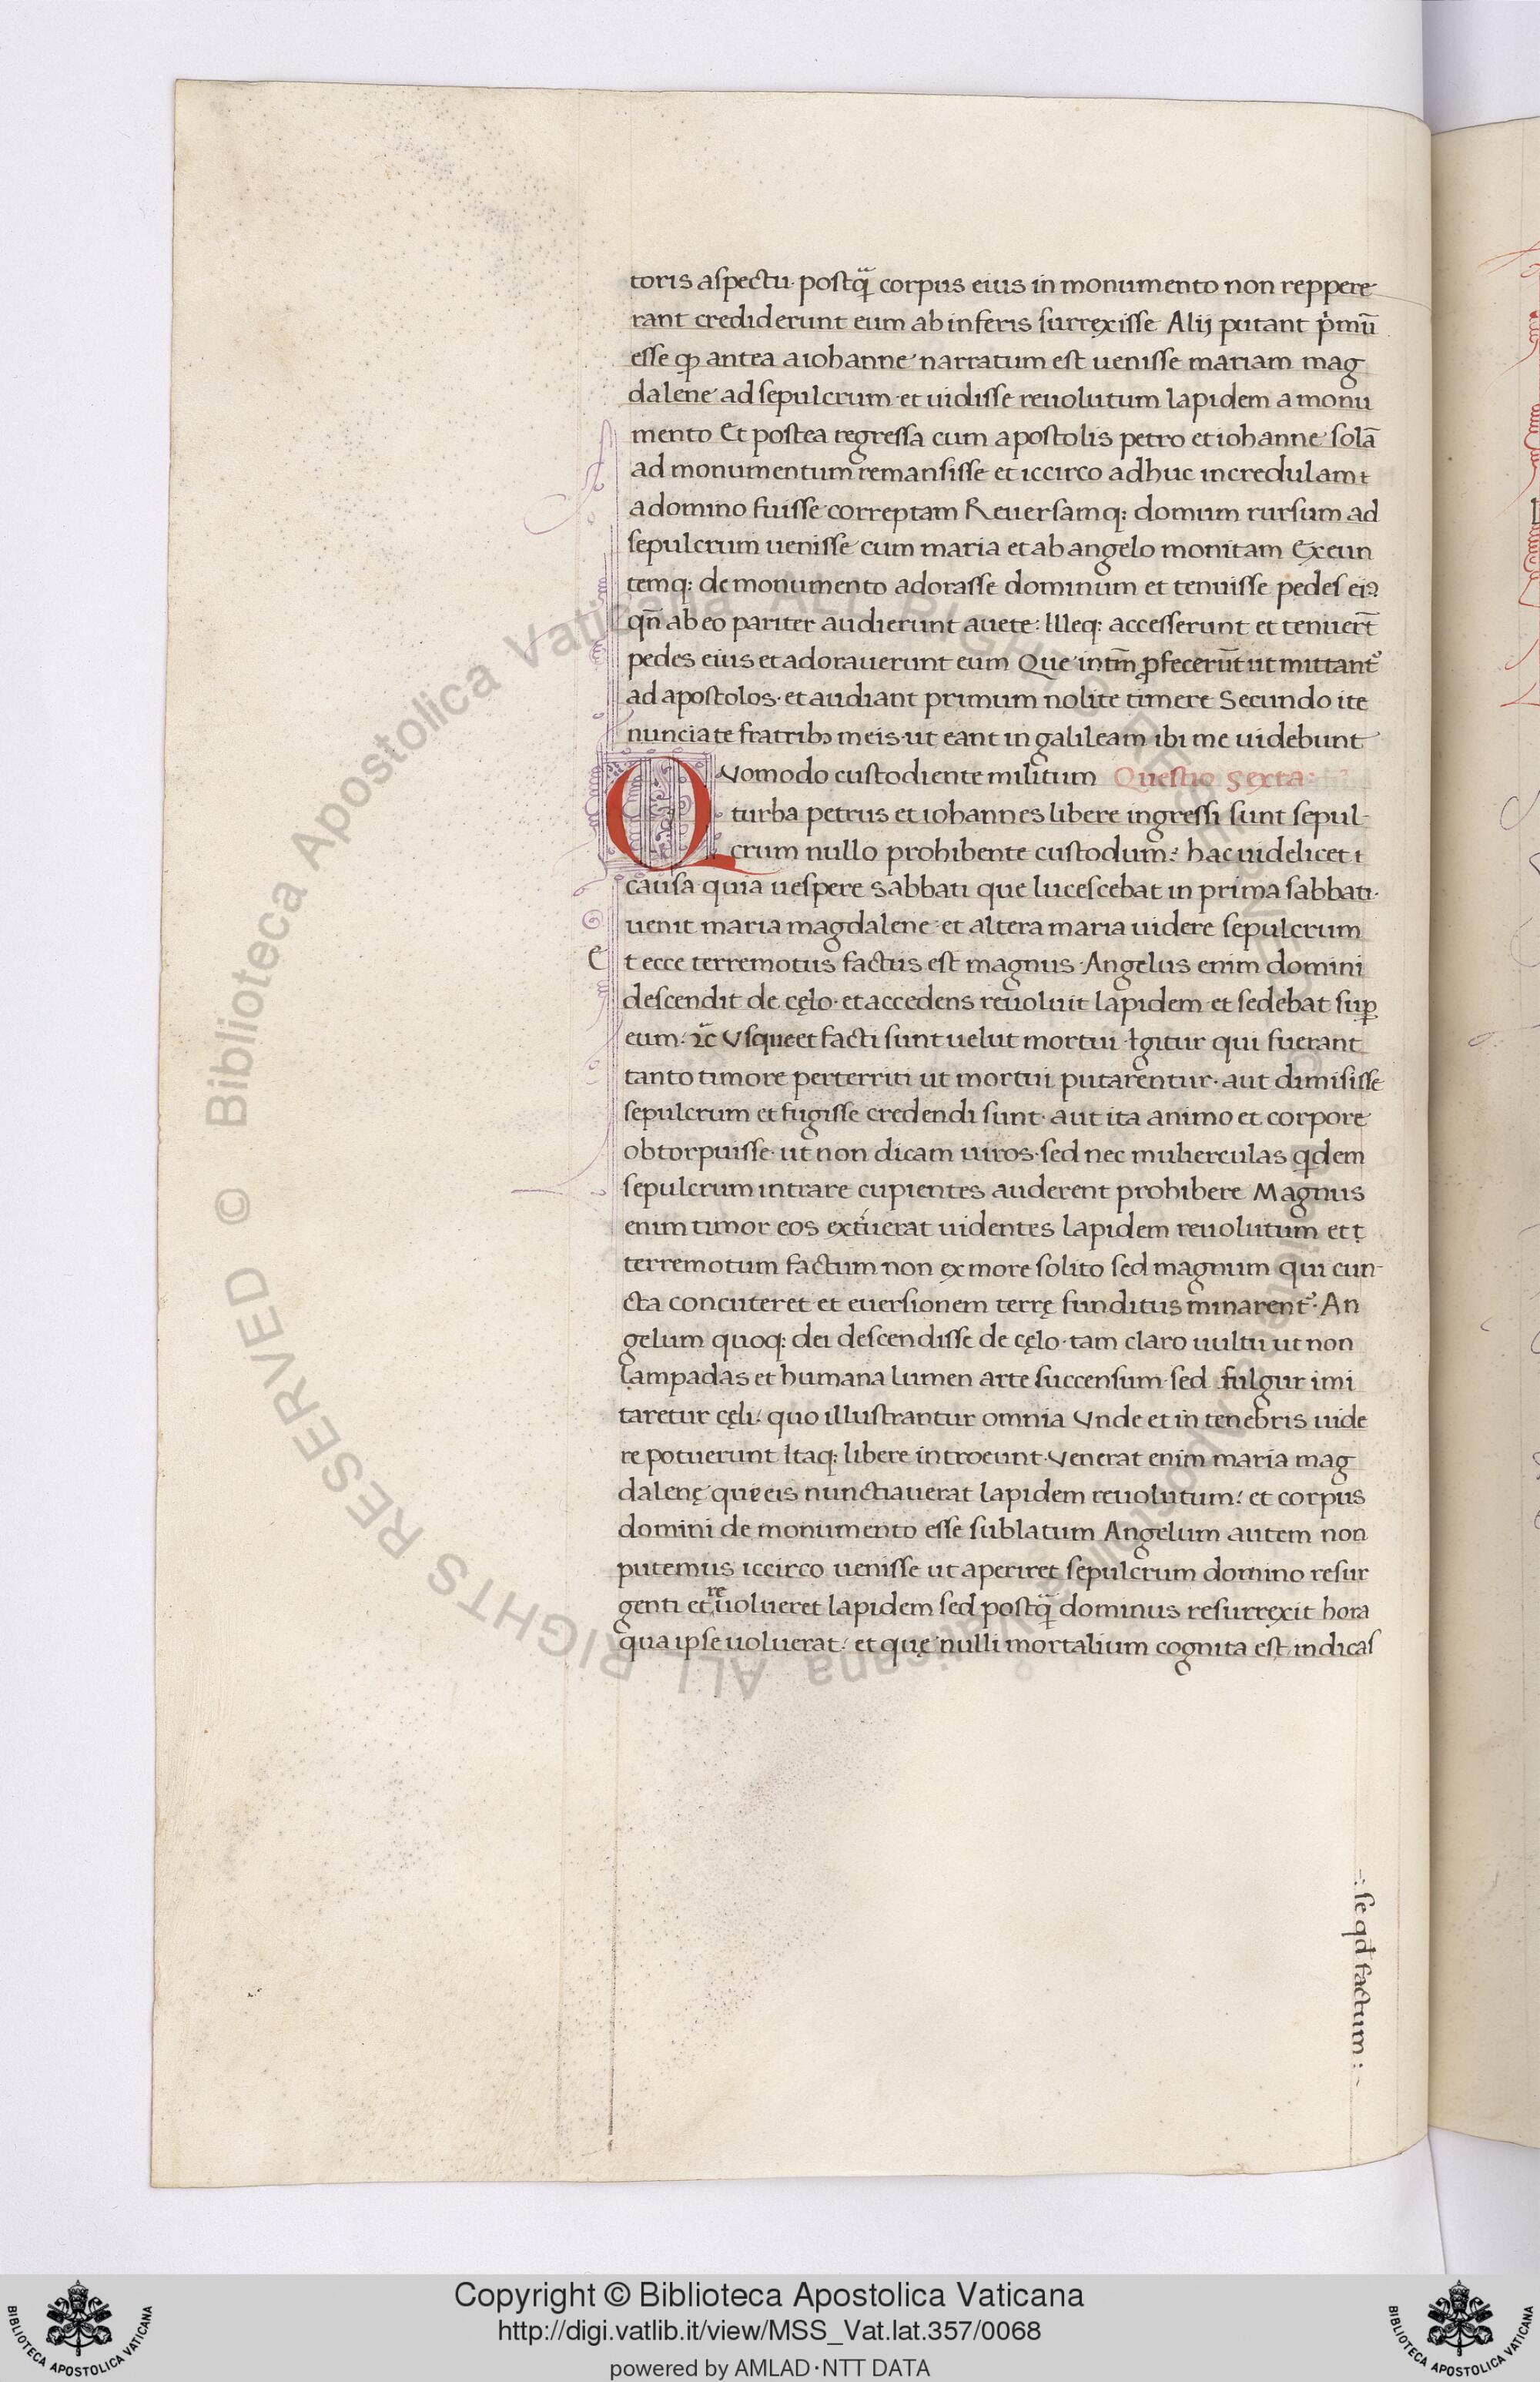 toris aspectu· postq̃ corpus eius in monumento non reppere
rant crediderunt eum ab inferis surrexisse Alij putant p̍mũ
esse qđ antea a iohanne narratum est uenisse mariam mag
dalene ad sepulcrum et uidisse reuolutum lapidem a monu
mento Et postea regressa cum apostolis petro et iohanne solã
ad monumentum remansisse et iccirco adhuc incredulam
a domino fuisse correptam Reuersamq: domum rursum ad
sepulcrum uenisse cum maria et ab angelo monitam Exeun
temq: de monumento adorasse dominum et tenuisse pedes eiꝰ
qñ ab eo pariter audierunt auete: Illeq: accesserunt et tenuert̃
pedes eius et adorauerunt eum Que in tm̃ ꝓfecerũt ut mittant᷒
ad apostolos· et audiant primum nolite timere Secundo ite
nunciate fratribꝫ meis· ut eant in galileam ibi me uidebunt
Quomodo custodiente militum Questio sexta:
turba petrus et iohannes libere ingressi sunt sepul-
crum nullo prohibente custodum? hac uidelicet
causa quia uespere sabbati que lucescebat in prima sabbati·
uenit maria magdalene et altera maria uidere sepulcrum
Et ecce terremotus factus est magnus· Angelus enim domini
descendit de cęlo· et accedens reuoluit lapidem et sedebat suꝑ
eum: ⁊c̃ Vsque et facti sunt uelut mortui· Igitur qui fuerant
tanto timore perterriti ut mortui putarentur· aut dimisisse
sepulcrum et fugisse credendi sunt· aut ita animo et corpore
obtorpuisse· ut non dicam uiros· sed nec mulierculas qdem
sepulcrum intrare cupientes auderent prohibere Magnus
enim timor eos exťuerat uidentes lapidem reuolutum et
terremotum factum non ex more solito sed magnum qui cun-
cta concuteret et euersionem terrę funditus minarent᷒· An
gelum quoq: dei descendisse de cęlo· tam claro uultu ut non
lampadas et humana lumen arte succensum· sed fulgur imi
taretur cęli: quo illustrantur omnia Vnde et in tenebris uide
re potuerunt Itaq: libere introeunt· Venerat enim maria mag
dalenę que eis nunctiauerat lapidem reuolutum: et corpus
domini de monumento esse sublatum Angelum autem non
putemus iccirco uenisse ut aperiret sepulcrum domino resur
genti et reuolueret lapidem sed postq̃ dominus resurrexit hora
qua ipse uoluerat: et quę nulli mortalium cognita est indicas
-: se qđ factum :-
© Biblioteca Apostolica Vaticana ALL RIGHTS RESERVED
Copyright © Biblioteca Apostolica Vaticana
http://digi.vatlib.it/view/MSS_Vat.lat.357/0068
powered by AMLAD·NTT DATA
BIBLIOTECA APOSTOLICA VATICANA
BIBLIOTECA APOSTOLICA VATICANA